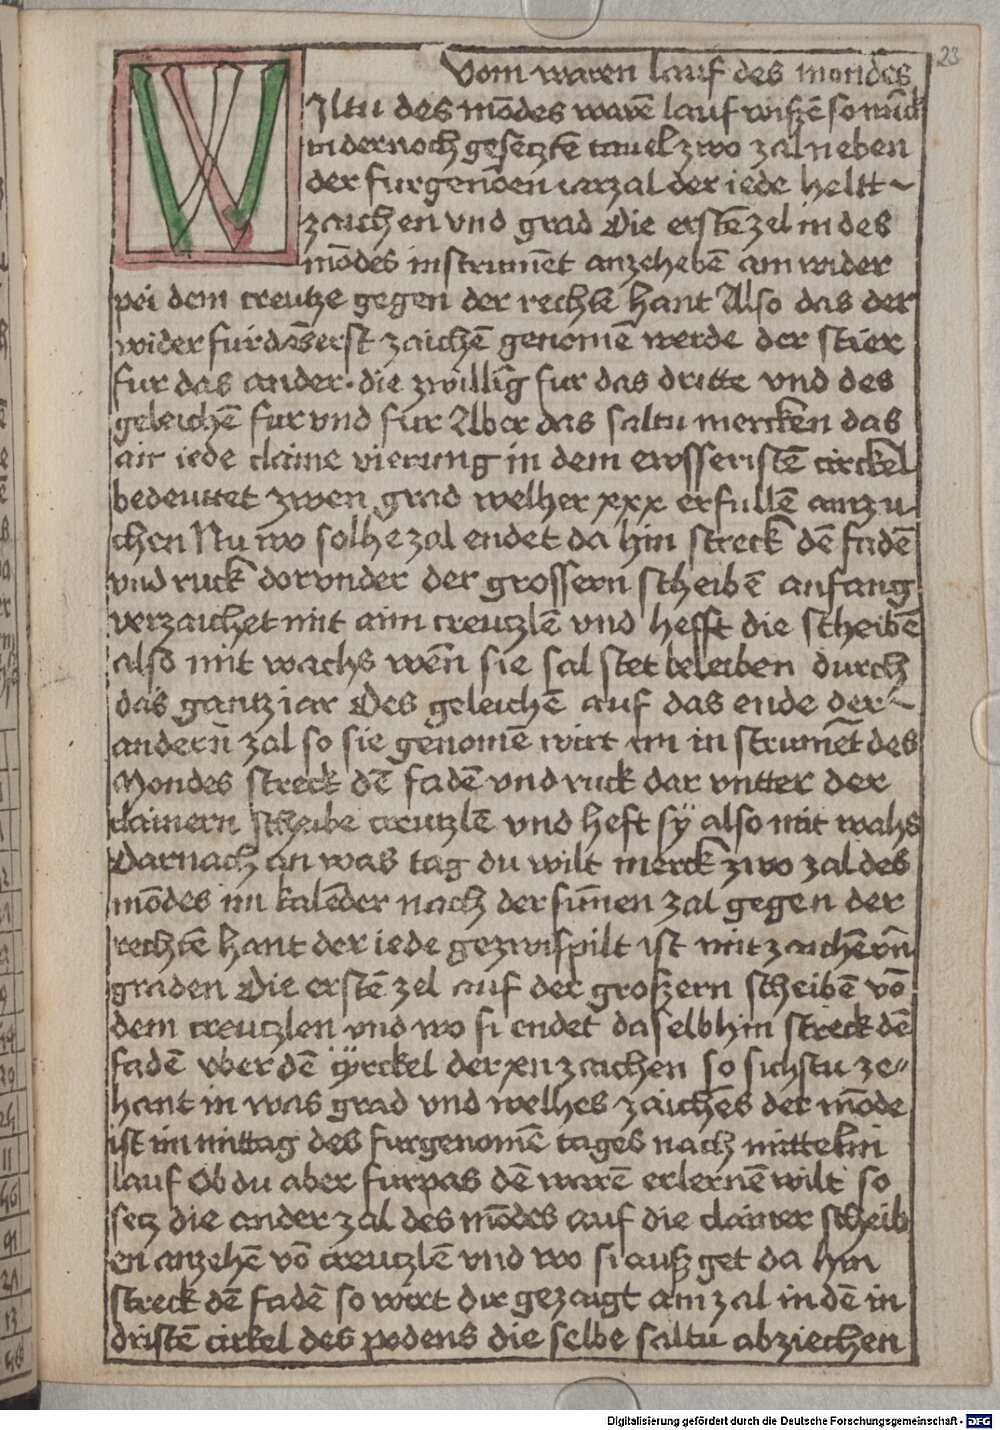 23
Vom waren lauf des mondes
Wiltu des mōdes warē lauf wißē so merck
in der noch gesetztē tauel zwo zal neben
der furgenōen iarzal der iede heltt
zaichen vnd grad Die erstē zel in des
mōdes instrumēt anzehebē am wider
pei dem creutze gegen der rechtē hant Also das der
wider fur das erst zaichē genomē werde der stier
fur das ander · die zwilling fur das dritte vnd des
geleichē fur vnd fur Aber das saltu mercken das
ain iede claine vierung in dem ewsseristē circkel
bedeuttet zwen grad welher xxx erfullē ain zai
chen Nu wo solhe zal endet da hin streck dē fadē
vnd ruck dorunder der grossern scheibē anfang
verzaichet mit aim creutzlē vnd hefft die scheibē
also mit wachs wēn sie sal stet beleiben durch
das gantz iar Des geleichē auf das ende der
andern zal so sie genomē wirt im instrumēt des
Mondes streck dē fadē vnd ruck dar vntter der
clainern scheibē creutzlē vnd heft sÿ also mit wahs
Darnach an was tag du wilt merck zwo zal des
mōdes im kalēder nach der sunnen zal gegen der
rechtē hant der iede gezwispilt ist mit zaichē vn̄
graden Die erstē zel auf der großern scheibē vō
dem creutzlen vnd wo si endet daselbhin streck dē
fadē vber dē cÿrckel der xii zaichen so sichstu ze
hant in was grad vnd welhes zaichēs der mōde
ist im mittag des furgenomē tages nach mittelm
lauf Ob du aber furpas dē warē erlernē wilt so
setz die ander zal des mōdes auf die clainer scheib
en anzehē vō creutzlē vnd wo si außget da hin
streck dē fadē so wirt dir gezaigt ain zal in dē in
dristē cirkel des podens die selbe saltu abziechen
Digitalisierung gefördert durch die Deutsche Forschungsgemeinschaft - DFG